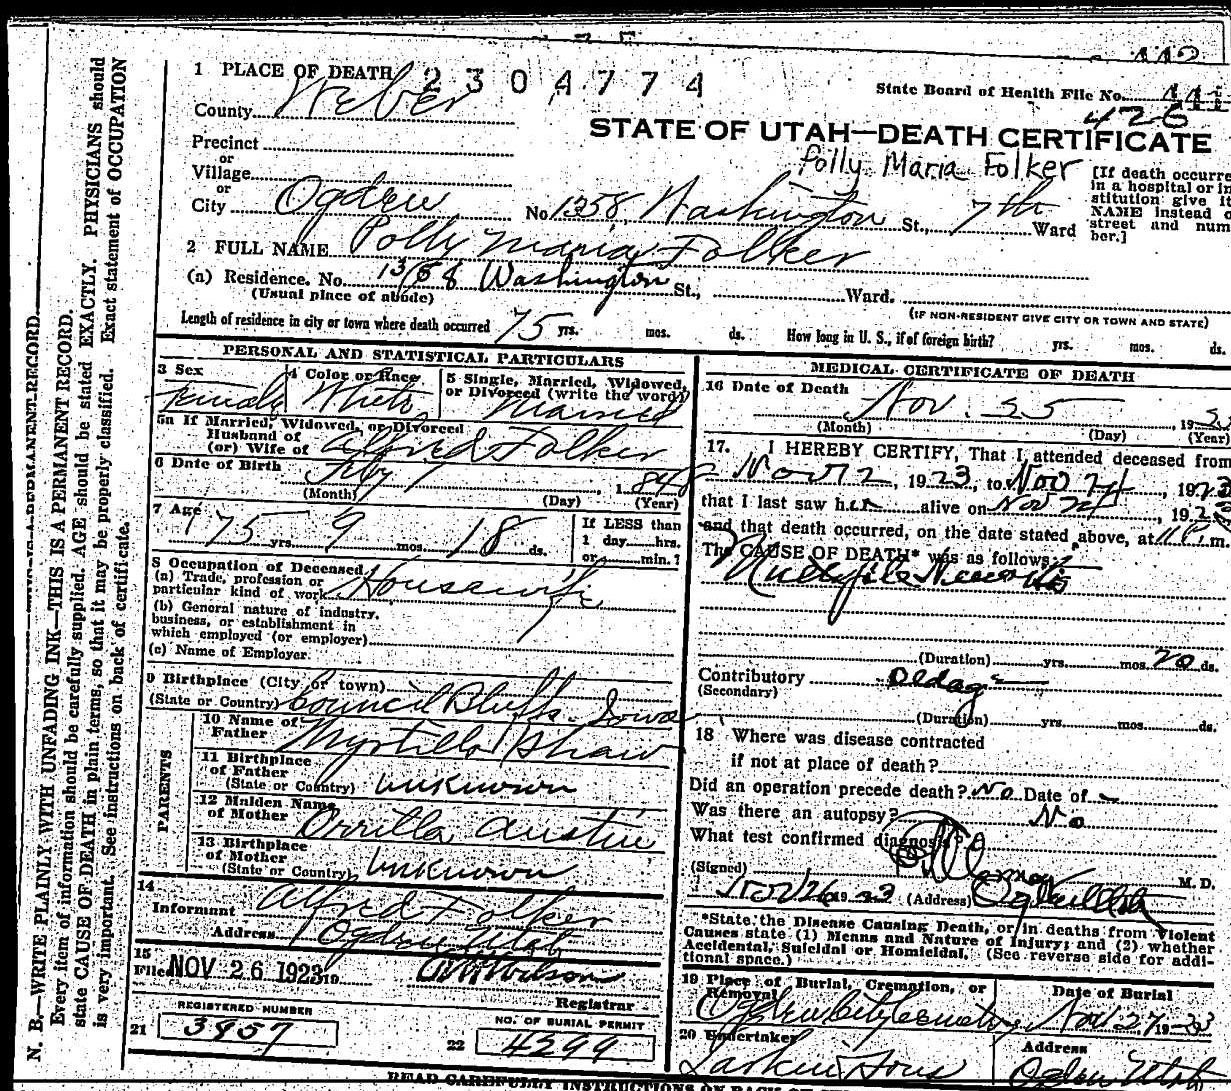 112
1 PLACE OF DEATH 2304774
State Board of Health File No. 426
County Weber
STATE OF UTAH—DEATH CERTIFICATE
Precinct
or
Village
or
Polly Maria Folker
[If death occurre
in a hospital or in
stitution give it
NAME instead o
street and num
ber.]
City Ogden No. 1358 Washington St., 7th Ward
2 FULL NAME Polly Maria Folker
(a) Residence. No. 1358 Washington St., Ward.
(Usual place of abode)
(IF NON-RESIDENT GIVE CITY OR TOWN AND STATE)
Length of residence in city or town where death occurred 75 yrs. mos. ds. How long in U. S., if of foreign birth? yrs. mos. ds.
PERSONAL AND STATISTICAL PARTICULARS
3 Sex 4 Color or Race 5 Single, Married, Widowed,
or Divorced (write the word)
Female White Married
5a If Married, Widowed, or Divorced
Husband of
(or) Wife of Alfred Folker
6 Date of Birth Feby 7, 1848
(Month) (Day) (Year)
7 Age 75 yrs. 9 mos. 18 ds.
If LESS than
1 day hrs.
or min.?
8 Occupation of Deceased
(a) Trade, profession or
particular kind of work Housewife
(b) General nature of industry,
business, or establishment in
which employed (or employer)
(c) Name of Employer
9 Birthplace (City or town)
(State or Country) Council Bluffs Iowa
PARENTS
10 Name of
Father Myrtillo Shaw
11 Birthplace
of Father
(State or Country) Unknown
12 Maiden Name
of Mother Orrilla Austin
13 Birthplace
of Mother
(State or Country) Unknown
14
Informant Alfred Folker
Address Ogden Utah
15
Filed NOV 26 1923 19 Wilson
Registrar
REGISTERED NUMBER
21 3957
NO. OF BURIAL PERMIT
22 4299
MEDICAL CERTIFICATE OF DEATH
16 Date of Death Nov. 25, 19
(Month) (Day) (Year)
17. I HEREBY CERTIFY, That I attended deceased from
Nov 12, 1923, to Nov 24, 1923
that I last saw her alive on Nov 24, 1923
and that death occurred, on the date stated above, at m.
The CAUSE OF DEATH* was as follows:
(Duration) yrs. mos. 20 ds.
Contributory Old age
(Secondary)
(Duration) yrs. mos. ds.
18 Where was disease contracted
if not at place of death?
Did an operation precede death? No Date of
Was there an autopsy? No
What test confirmed diagnosis?
(Signed) M. D.
Nov 26 1923 (Address) Ogden Utah
*State the Disease Causing Death, or in deaths from Violent
Causes state (1) Means and Nature of Injury; and (2) whether
Accidental, Suicidal or Homicidal. (See reverse side for addi-
tional space.)
19 Place of Burial, Cremation, or
Removal
Date of Burial
Ogden City Cemetery Nov 27 1923
20 Undertaker Address
Larkin & Sons Ogden Utah
N. B.—WRITE PLAINLY WITH UNFADING INK—THIS IS A PERMANENT RECORD.
Every item of information should be carefully supplied. AGE should be stated EXACTLY. PHYSICIANS should
state CAUSE OF DEATH in plain terms, so that it may be properly classified. Exact statement of OCCUPATION
is very important. See instructions on back of certificate.
READ CAREFULLY INSTRUCTIONS ON BACK OF